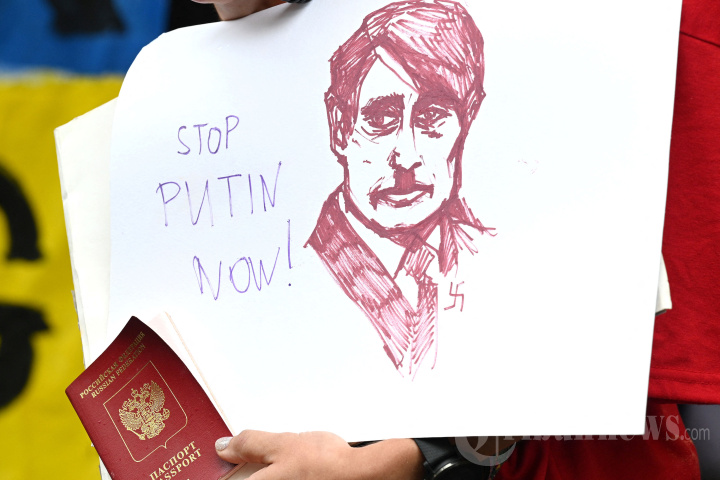 STOP
PUTIN
NOW!
РОССИЙСКАЯ ФЕДЕРАЦИЯ
RUSSIAN FEDERATION
ПАСПОРТ
PASSPORT
Tribunnews.com